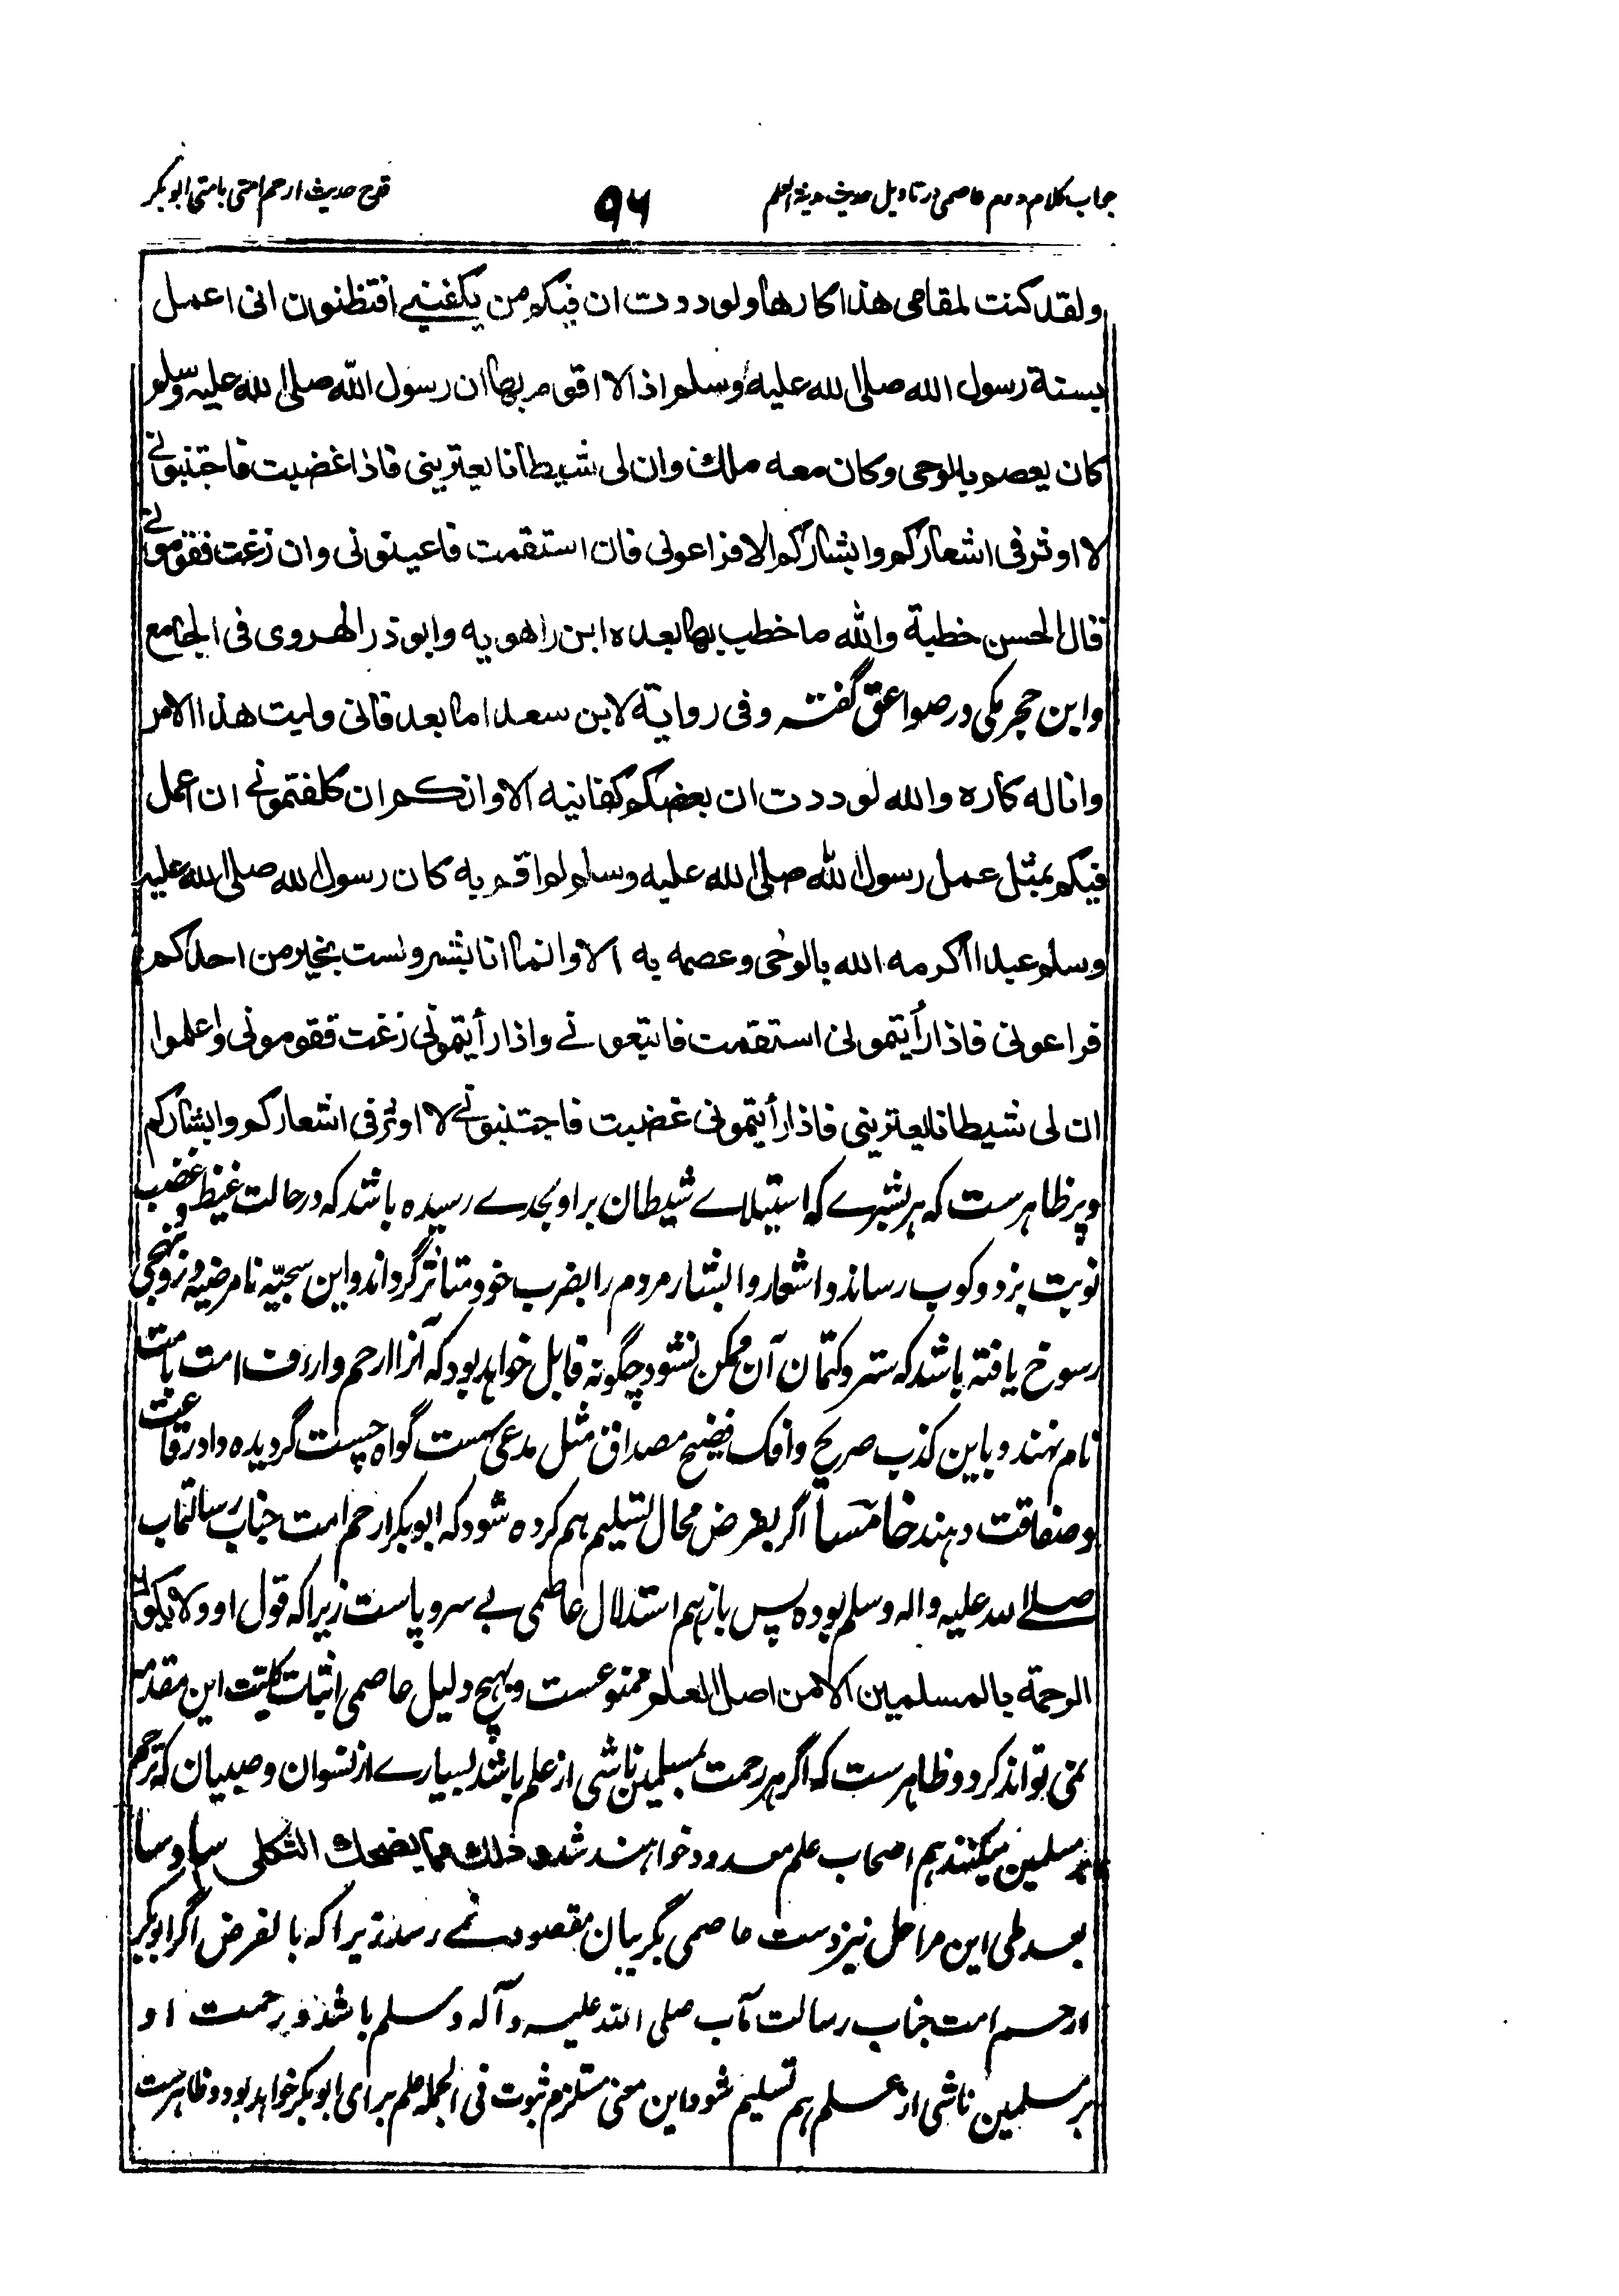 جواب کلام دوم عاصمی در تاویل حدیث مدینة العلم
٩٦
قدح حدیث ارحم امتی بامتی ابوبکر
ولقد کنت لمقامی هذا کارها ولوددت ان فیکم من یکفینے افتظنون انی اعمل
بسنة رسول الله صلی الله علیه وسلم اذا لا اقوم بها ان رسول الله صلی الله علیه وسلم
کان یعصم بالوحی وکان معه ملك وان لی شیطانا یعترینی فاذا غضبت فاجتنبونے
لا اوثر فی اشعارکم وابشارکم الا فراعونی فان استقمت فاعینونی وان زغت فقومونے
قال الحسن خطبة والله ما خطب بها بعده ابن راهویه وابو ذر الهروی فی الجامع
وابن حجر مکی در صواعق گفته وفی روایة لابن سعد اما بعد فانی ولیت هذا الامر
وانا له کاره والله لوددت ان بعضکم کفانیه الا وانکم ان کلفتمونے ان اعمل
فیکم بمثل عمل رسول الله صلی الله علیه وسلم لم اقم به کان رسول الله صلی الله علیه
وسلم عبدا اکرمه الله بالوحی وعصمه به الا وانما انا بشر ولست بخیر من احدکم
فراعونی فاذا رأیتمونی استقمت فاتبعونے واذا رأیتمونی زغت فقومونی واعلموا
ان لی شیطانا یعترینی فاذا رأیتمونی غضبت فاجتنبونے لا اوثر فی اشعارکم وابشارکم
و پر ظاهرست که هر بشرے که استیلاے شیطان بر او بحدے رسیده باشد که در حالت غیظ و غضب
نوبت بزد و کوب رساند و اشعار و ابشار مردم را بضرب خود متاثر گرداند و این سجیّه نامرضیه در و بنهجی
رسوخ یافته باشد که ستر و کتمان آن ممکن نشود چگونه قابل خواهد بود که آنرا ارحم و ارءف امت بامت
نام نهند و باین کذب صریح و افک فضیح مصداق مثل مدعی سست گواه چست گردیده داد رقاعت
و صفاقت دهند خامسا اگر بفرض محال تسلیم هم کرده شود که ابوبکر ارحم امت جناب رسالتمآب
صلے الله علیه واله وسلم بوده پس باز هم استدلال عاصمی بے سر و پاست زیرا که قول او ولا یکون
الرحمة بالمسلمین الا من اصل العلم ممنوعست و بهیچ دلیل عاصمی اثبات کلیّت این مقدمه
نمی تواند کرد و ظاهرست که اگر هر رحمت بمسلمین ناشی از علم باشد بسیارے از نسوان و صبیان که ترحم
بر مسلمین میکنند هم اصحاب علم معدود خواهند شد و ذلك مما یضحك الثکلی سادسا
بعد طی این مراحل نیز دست عاصمی بگریبان مقصود نمے رسد زیرا که بالفرض اگر ابوبکر
ارحم امت جناب رسالت مآب صلی الله علیه و آله و سلم باشد و رحمت او
بر مسلمین ناشی از علم هم تسلیم شود این معنی مستلزم ثبوت فی الجمله علم برای ابوبکر خواهد بود و ظاهرست